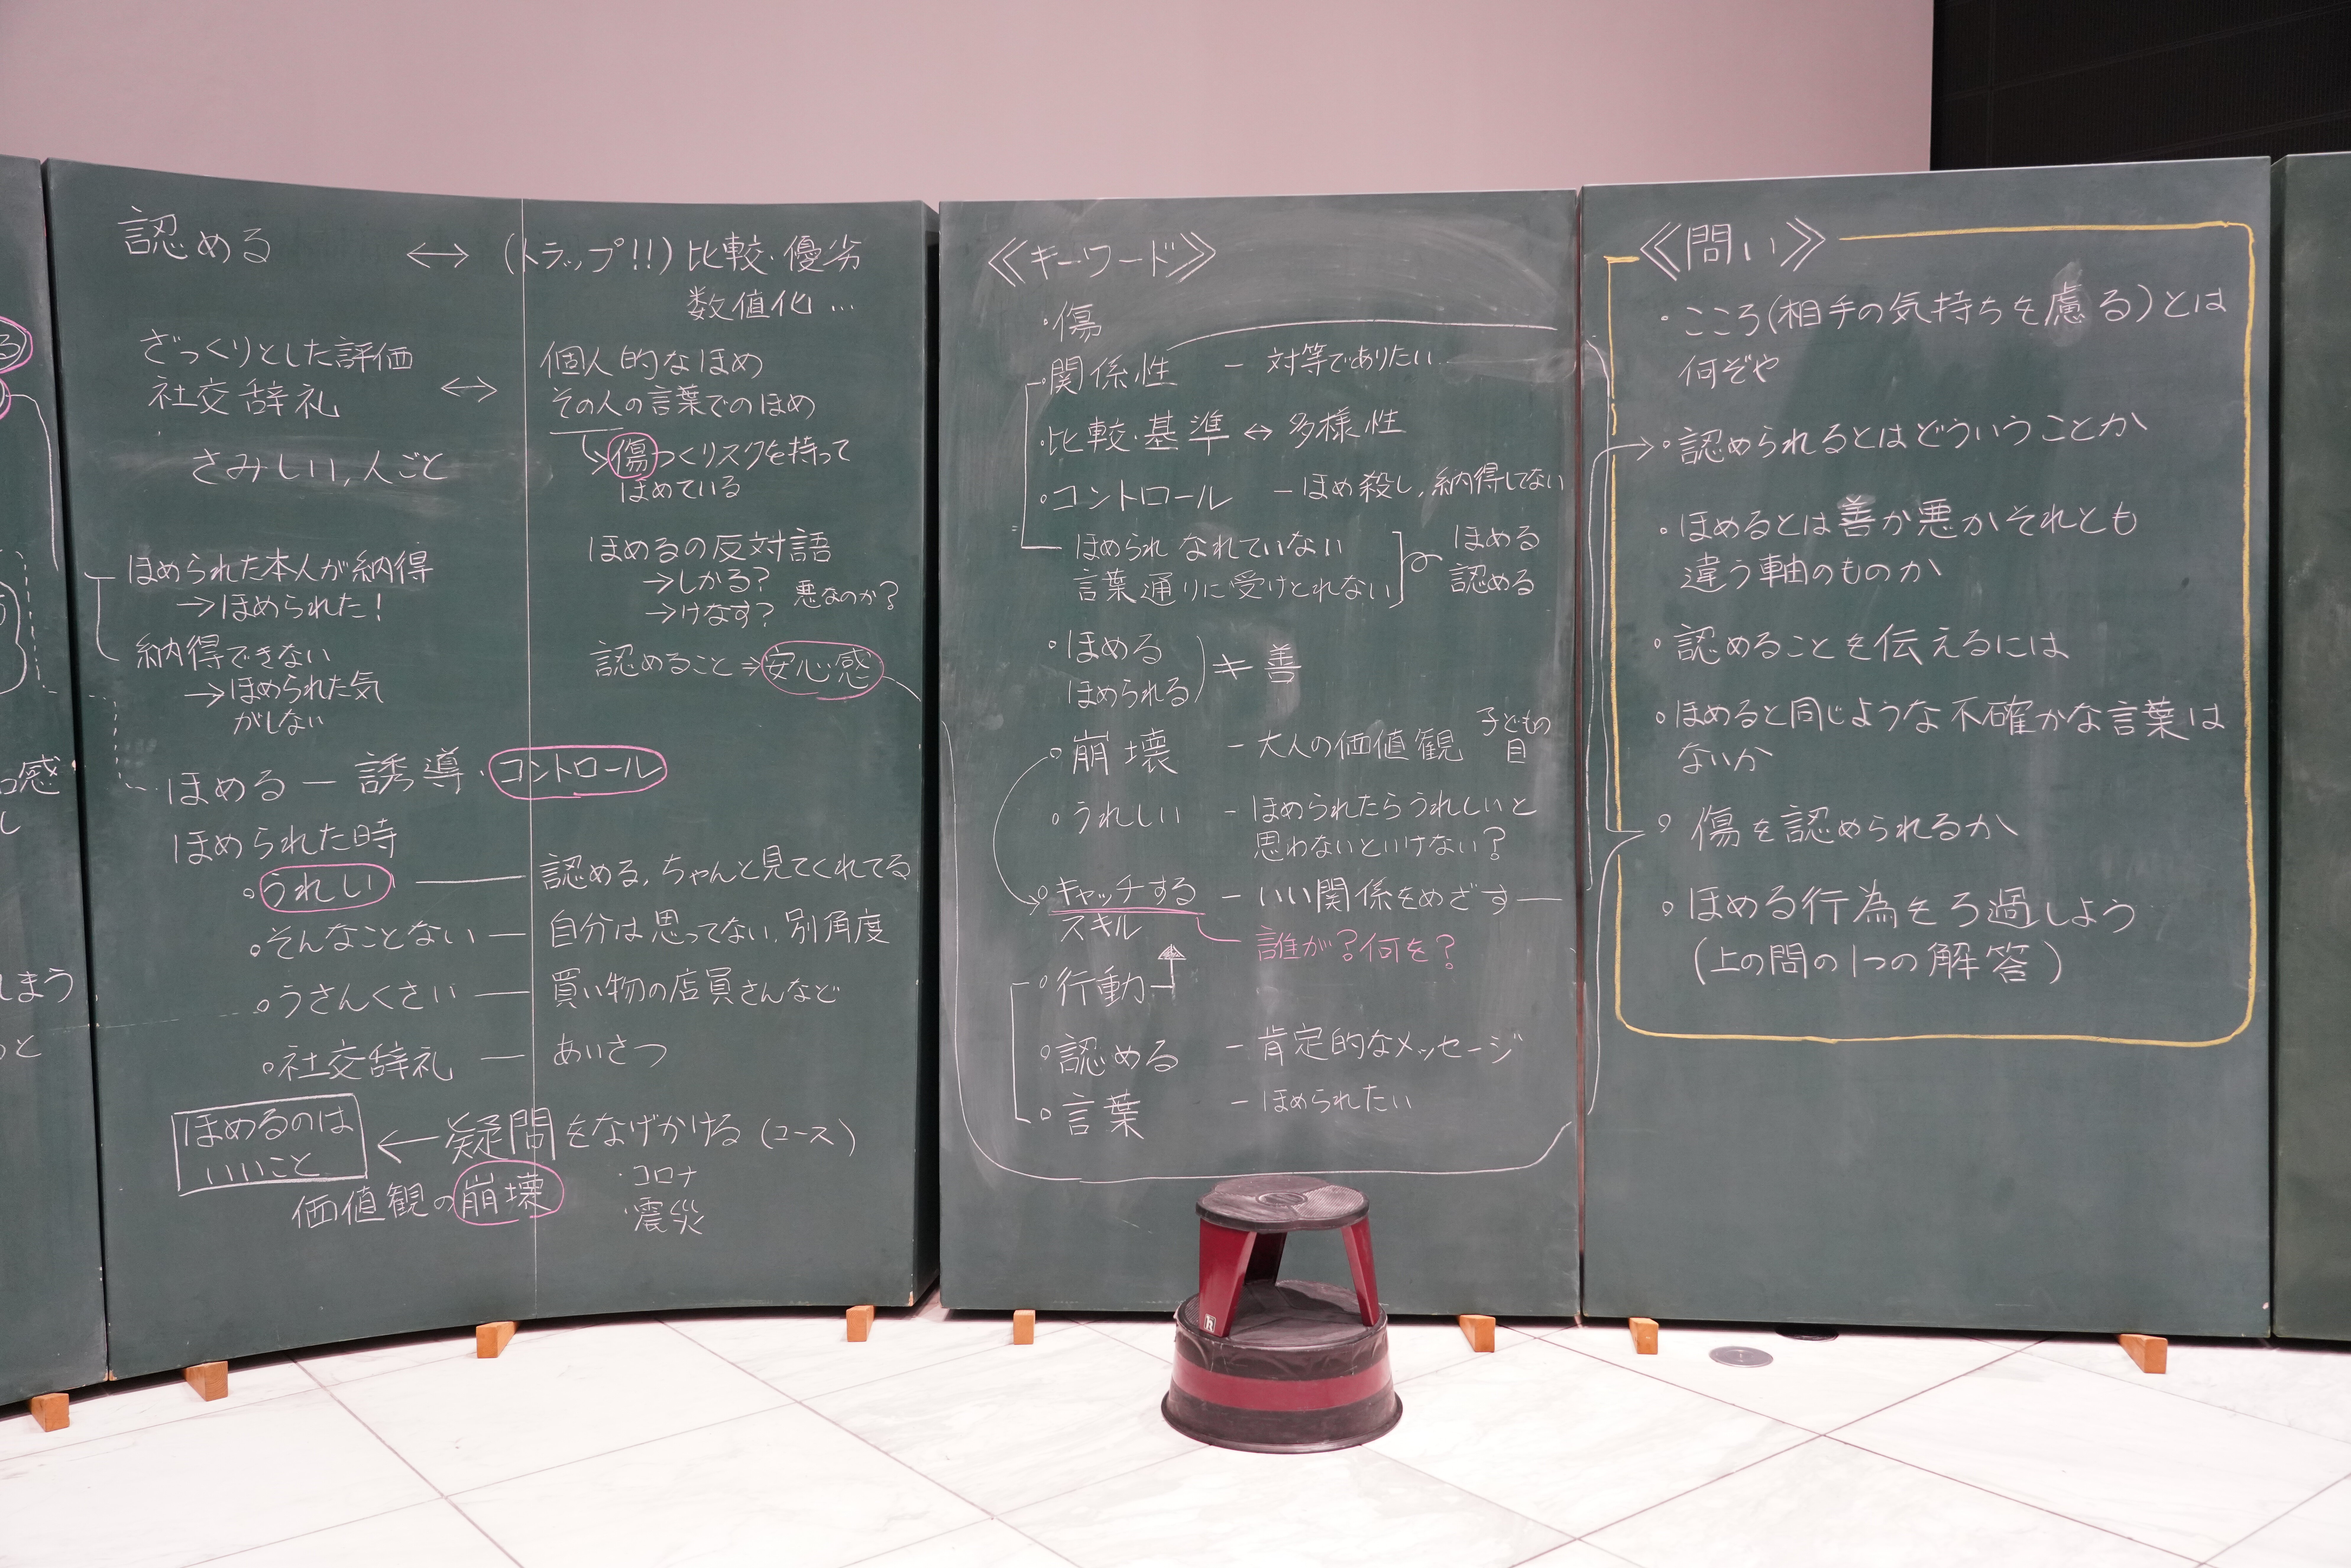 感
し
しまう
と
認める ↔ (トラップ!!) 比較・優劣
数値化 …
ざっくりとした評価
社交辞礼 ↔
個人的なほめ
その人の言葉でのほめ
→傷つくリスクを持って
ほめている
さみしい,人ごと
ほめられた本人が納得
→ほめられた!
納得できない
→ほめられた気
がしない
ほめるの反対語
→しかる?
→けなす? 悪なのか?
認めること⇒安心感
ほめる — 誘導・コントロール
ほめられた時
○うれしい — 認める,ちゃんと見てくれてる
○そんなことない — 自分は思ってない,別角度
○うさんくさい — 買い物の店員さんなど
○社交辞礼 — あいさつ
ほめるのは
いいこと
← 疑問をなげかける (コース)
価値観の崩壊
・コロナ
・震災
≪キーワード≫
・傷
・関係性 — 対等でありたい
・比較・基準 ↔ 多様性
○コントロール — ほめ殺し,納得してない
ほめられ なれていない
言葉通りに受けとれない
ほめる
認める
○ほめる
ほめられる
≠ 善
○崩壊 — 大人の価値観 子どもの
目
○うれしい — ほめられたらうれしいと
思わないといけない?
○キャッチする — いい関係をめざす
スキル
誰が?何を?
○行動
○認める — 肯定的なメッセージ
○言葉 — ほめられたい
≪問い≫
○こころ(相手の気持ちを慮る)とは
何ぞや
○認められるとはどういうことか
○ほめるとは善か悪かそれとも
違う軸のものか
○認めることを伝えるには
○ほめると同じような不確かな言葉は
ないか
○傷を認められるか
○ほめる行為をろ過しよう
(上の問の1つの解答)